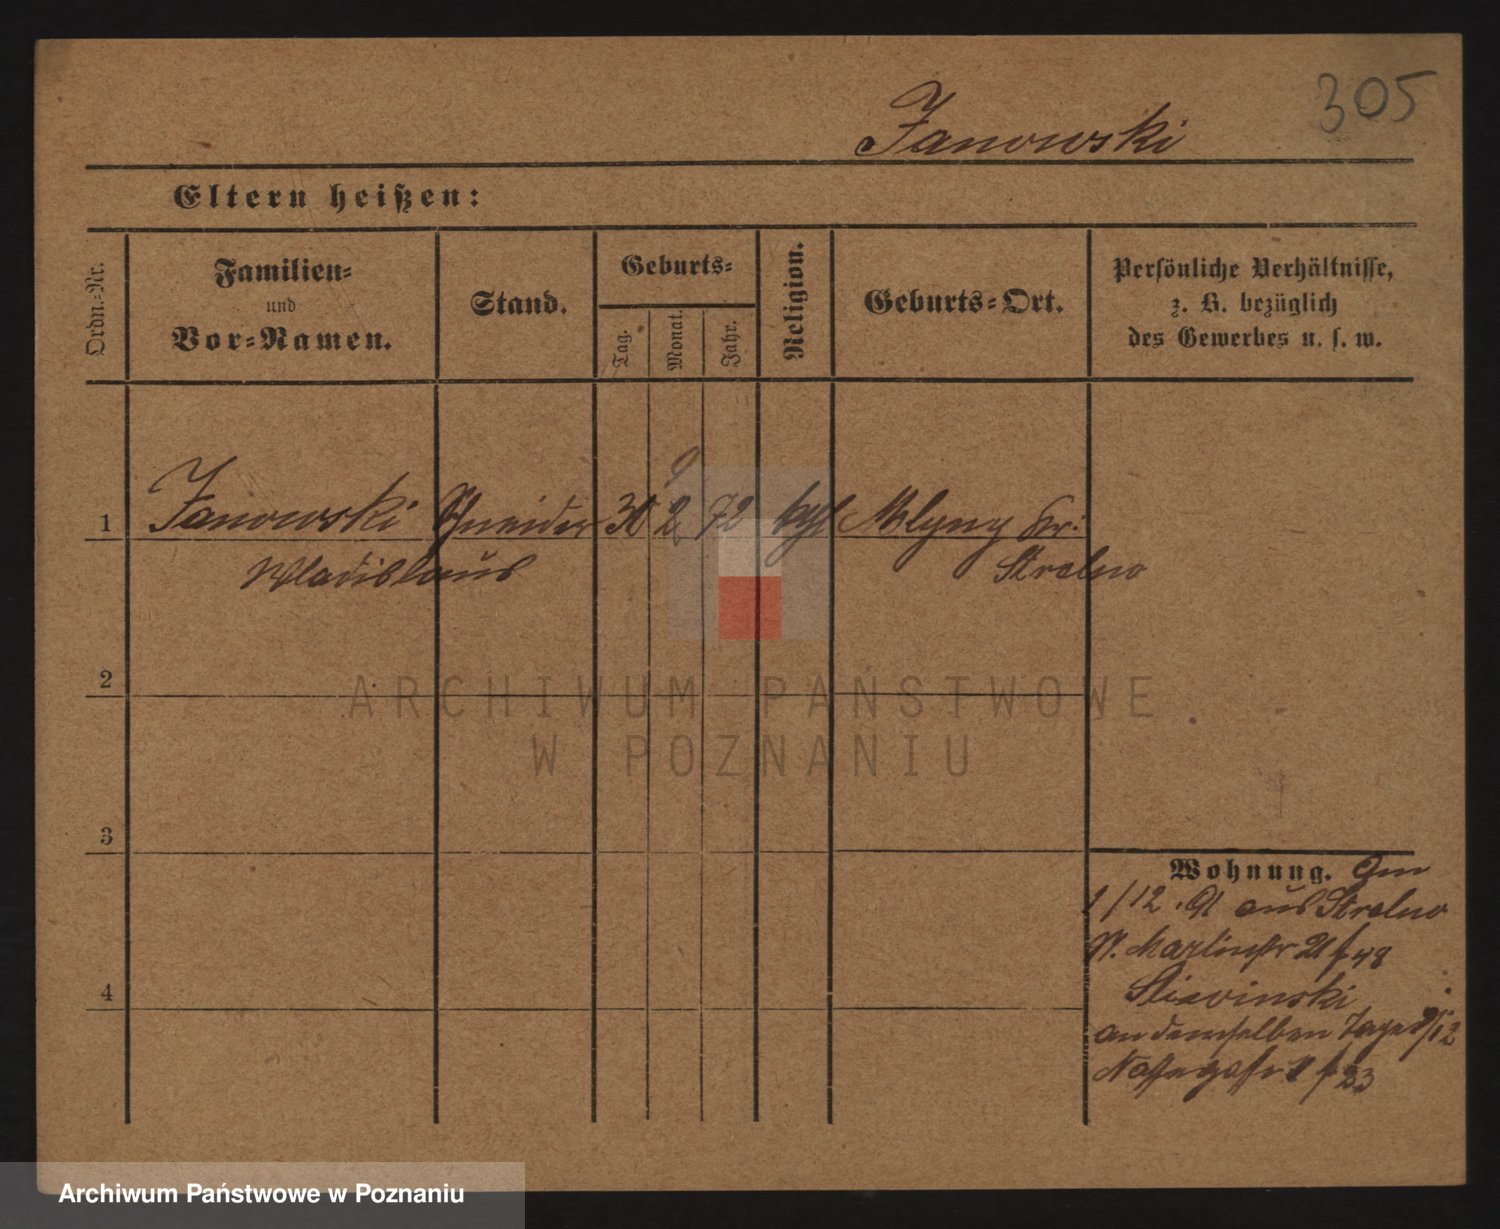 305
Janowski
Eltern heißen:
Ordn.=Nr.
Familien=
und
Vor=Namen.
Stand.
Geburts=
Tag.
Monat.
Jahr.
Religion.
Geburts=Ort.
Persönliche Verhältnisse,
z. B. bezüglich
des Gewerbes u. s. w.
1 Janowski Schneider 30 72 kath Mlyny Kr:
Wladislaus Strelno
2
3
4
Wohnung. Am
1/12. 91 aus Strelno
St. Martinstr 21 f 48
an demselben Tage
Nassegasse f 23
ARCHIWUM PAŃSTWOWE
W POZNANIU
Archiwum Państwowe w Poznaniu